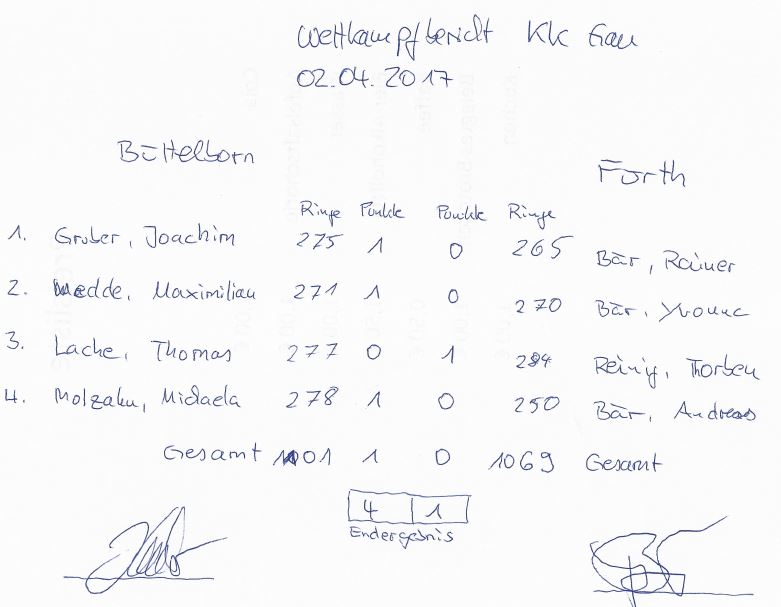 Wettkampfbericht KK Gau
02.04.2017
Büttelborn Fürth
Ringe Punkte Punkte Ringe
1. Gruber, Joachim 275 1 0 265 Bär, Rainer
2. Medde, Maximilian 271 1 0 270 Bär, Yvonne
3. Lache, Thomas 277 0 1 284 Reinig, Thorben
4. Molzahn, Michaela 278 1 0 250 Bär, Andreas
Gesamt 1101 1 0 1069 Gesamt
4 1
Endergebnis